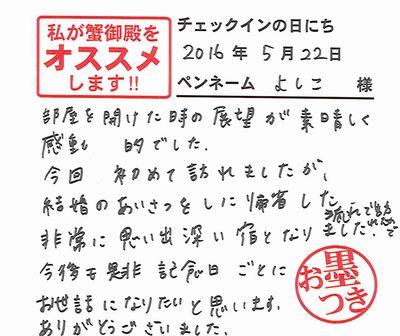 私が蟹御殿を
オススメ
します!!
チェックインの日にち
2016年 5月22日
ペンネーム よしこ 様
部屋を開けた時の展望が素晴しく
感動 的でした.
今回 初めて訪れましたが、
結婚のあいさつをしに帰省した
流れで訪れたので
非常に思い出深い宿となりました、
今後も是非 記念日ごとに
お世話になりたいと思います.
ありがとうございました.
お墨つき